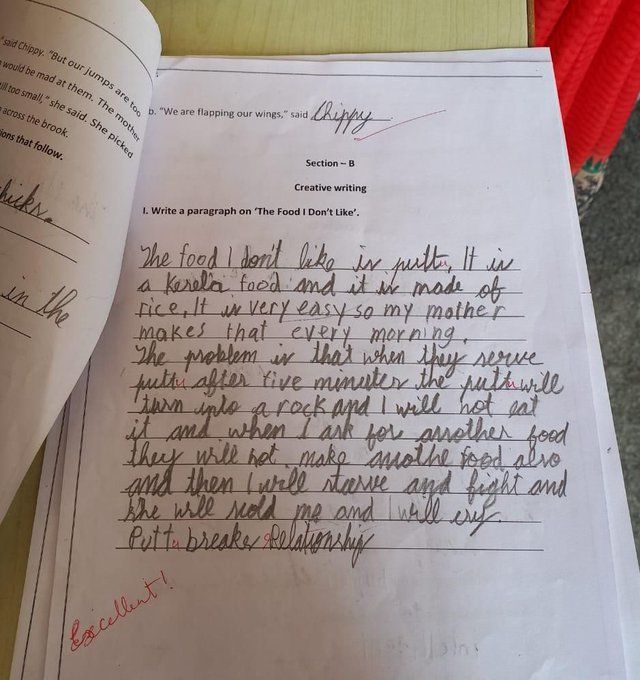 " said Chippy. "But our jumps are too
would be mad at them. The mother
till too small," she said. She picked
across the brook.
ions that follow.
hicks.
in the
b. "We are flapping our wings," said Chippy
Section – B
Creative writing
I. Write a paragraph on 'The Food I Don't Like'.
The food I don't like is puttu, It is
a Kerela food and it is made of
rice. It is very easy so my mother
makes that every morning.
The problem is that when they serve
puttu after five minutes the puttu will
turn into a rock and I will not eat
it and when I ask for another food
they will not make anothe food also
and then I will starve and fight and
she will scold me and I will cry.
Puttu breakes Relationship
Excellent!